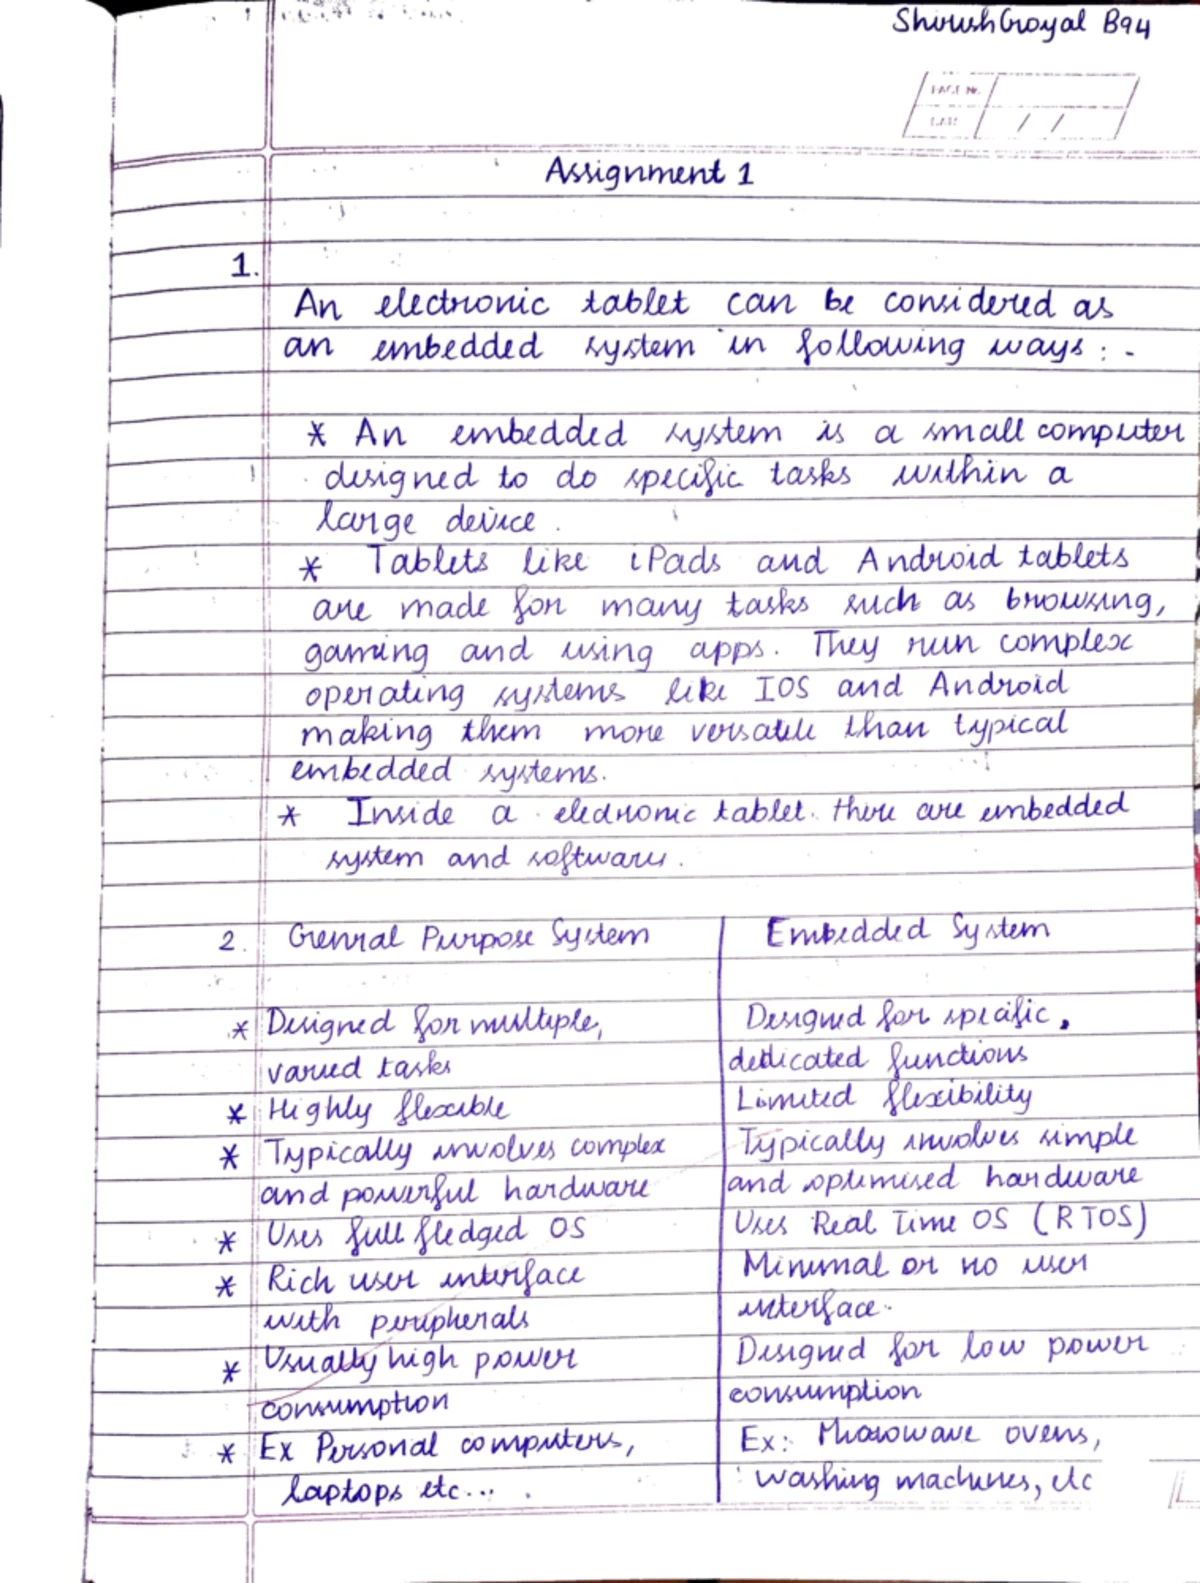 Shirish Goyal B94
PAGE No.
DATE / /
Assignment 1
1.
An electronic tablet can be considered as
an embedded system in following ways : -
* An embedded system is a small computer
designed to do specific tasks within a
large device.
* Tablets like iPads and Android tablets
are made for many tasks such as browsing,
gaming and using apps. They run complex
operating systems like IOS and Android
making them more versatile than typical
embedded systems.
* Inside a electronic tablet there are embedded
system and software.
2. General Purpose System | Embedded System
* Designed for multiple, | Designed for specific,
varied tasks | dedicated functions
* Highly flexible | Limited flexibility
* Typically involves complex | Typically involves simple
and powerful hardware | and optimised hardware
* Uses full fledged OS | Uses Real Time OS (RTOS)
* Rich user interface | Minimal or no user
with peripherals | interface.
* Usually high power | Designed for low power
consumption | consumption
* Ex Personal computers, | Ex: Microwave ovens,
laptops etc... | washing machines, etc